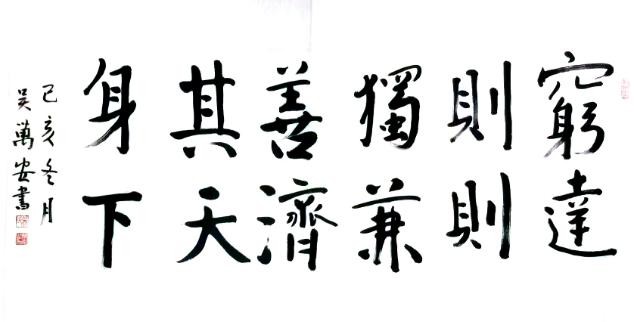 窮則獨善其身
達則兼濟天下
己亥冬月
吴萬安書